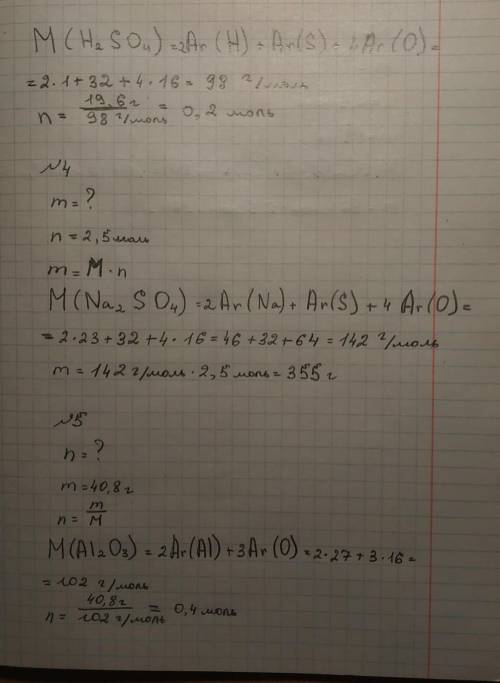 M(H₂SO₄) = 2Ar(H) + Ar(S) + 4Ar(O) =
= 2·1 + 32 + 4·16 = 98 г/моль
n = 19,6 г / 98 г/моль = 0,2 моль
№4
m = ?
n = 2,5 моль
m = M·n
M(Na₂SO₄) = 2Ar(Na) + Ar(S) + 4Ar(O) =
= 2·23 + 32 + 4·16 = 46 + 32 + 64 = 142 г/моль
m = 142 г/моль · 2,5 моль = 355 г
№5
n = ?
m = 40,8 г
n = m / M
M(Al₂O₃) = 2Ar(Al) + 3Ar(O) = 2·27 + 3·16 =
= 102 г/моль
n = 40,8 г / 102 г/моль = 0,4 моль